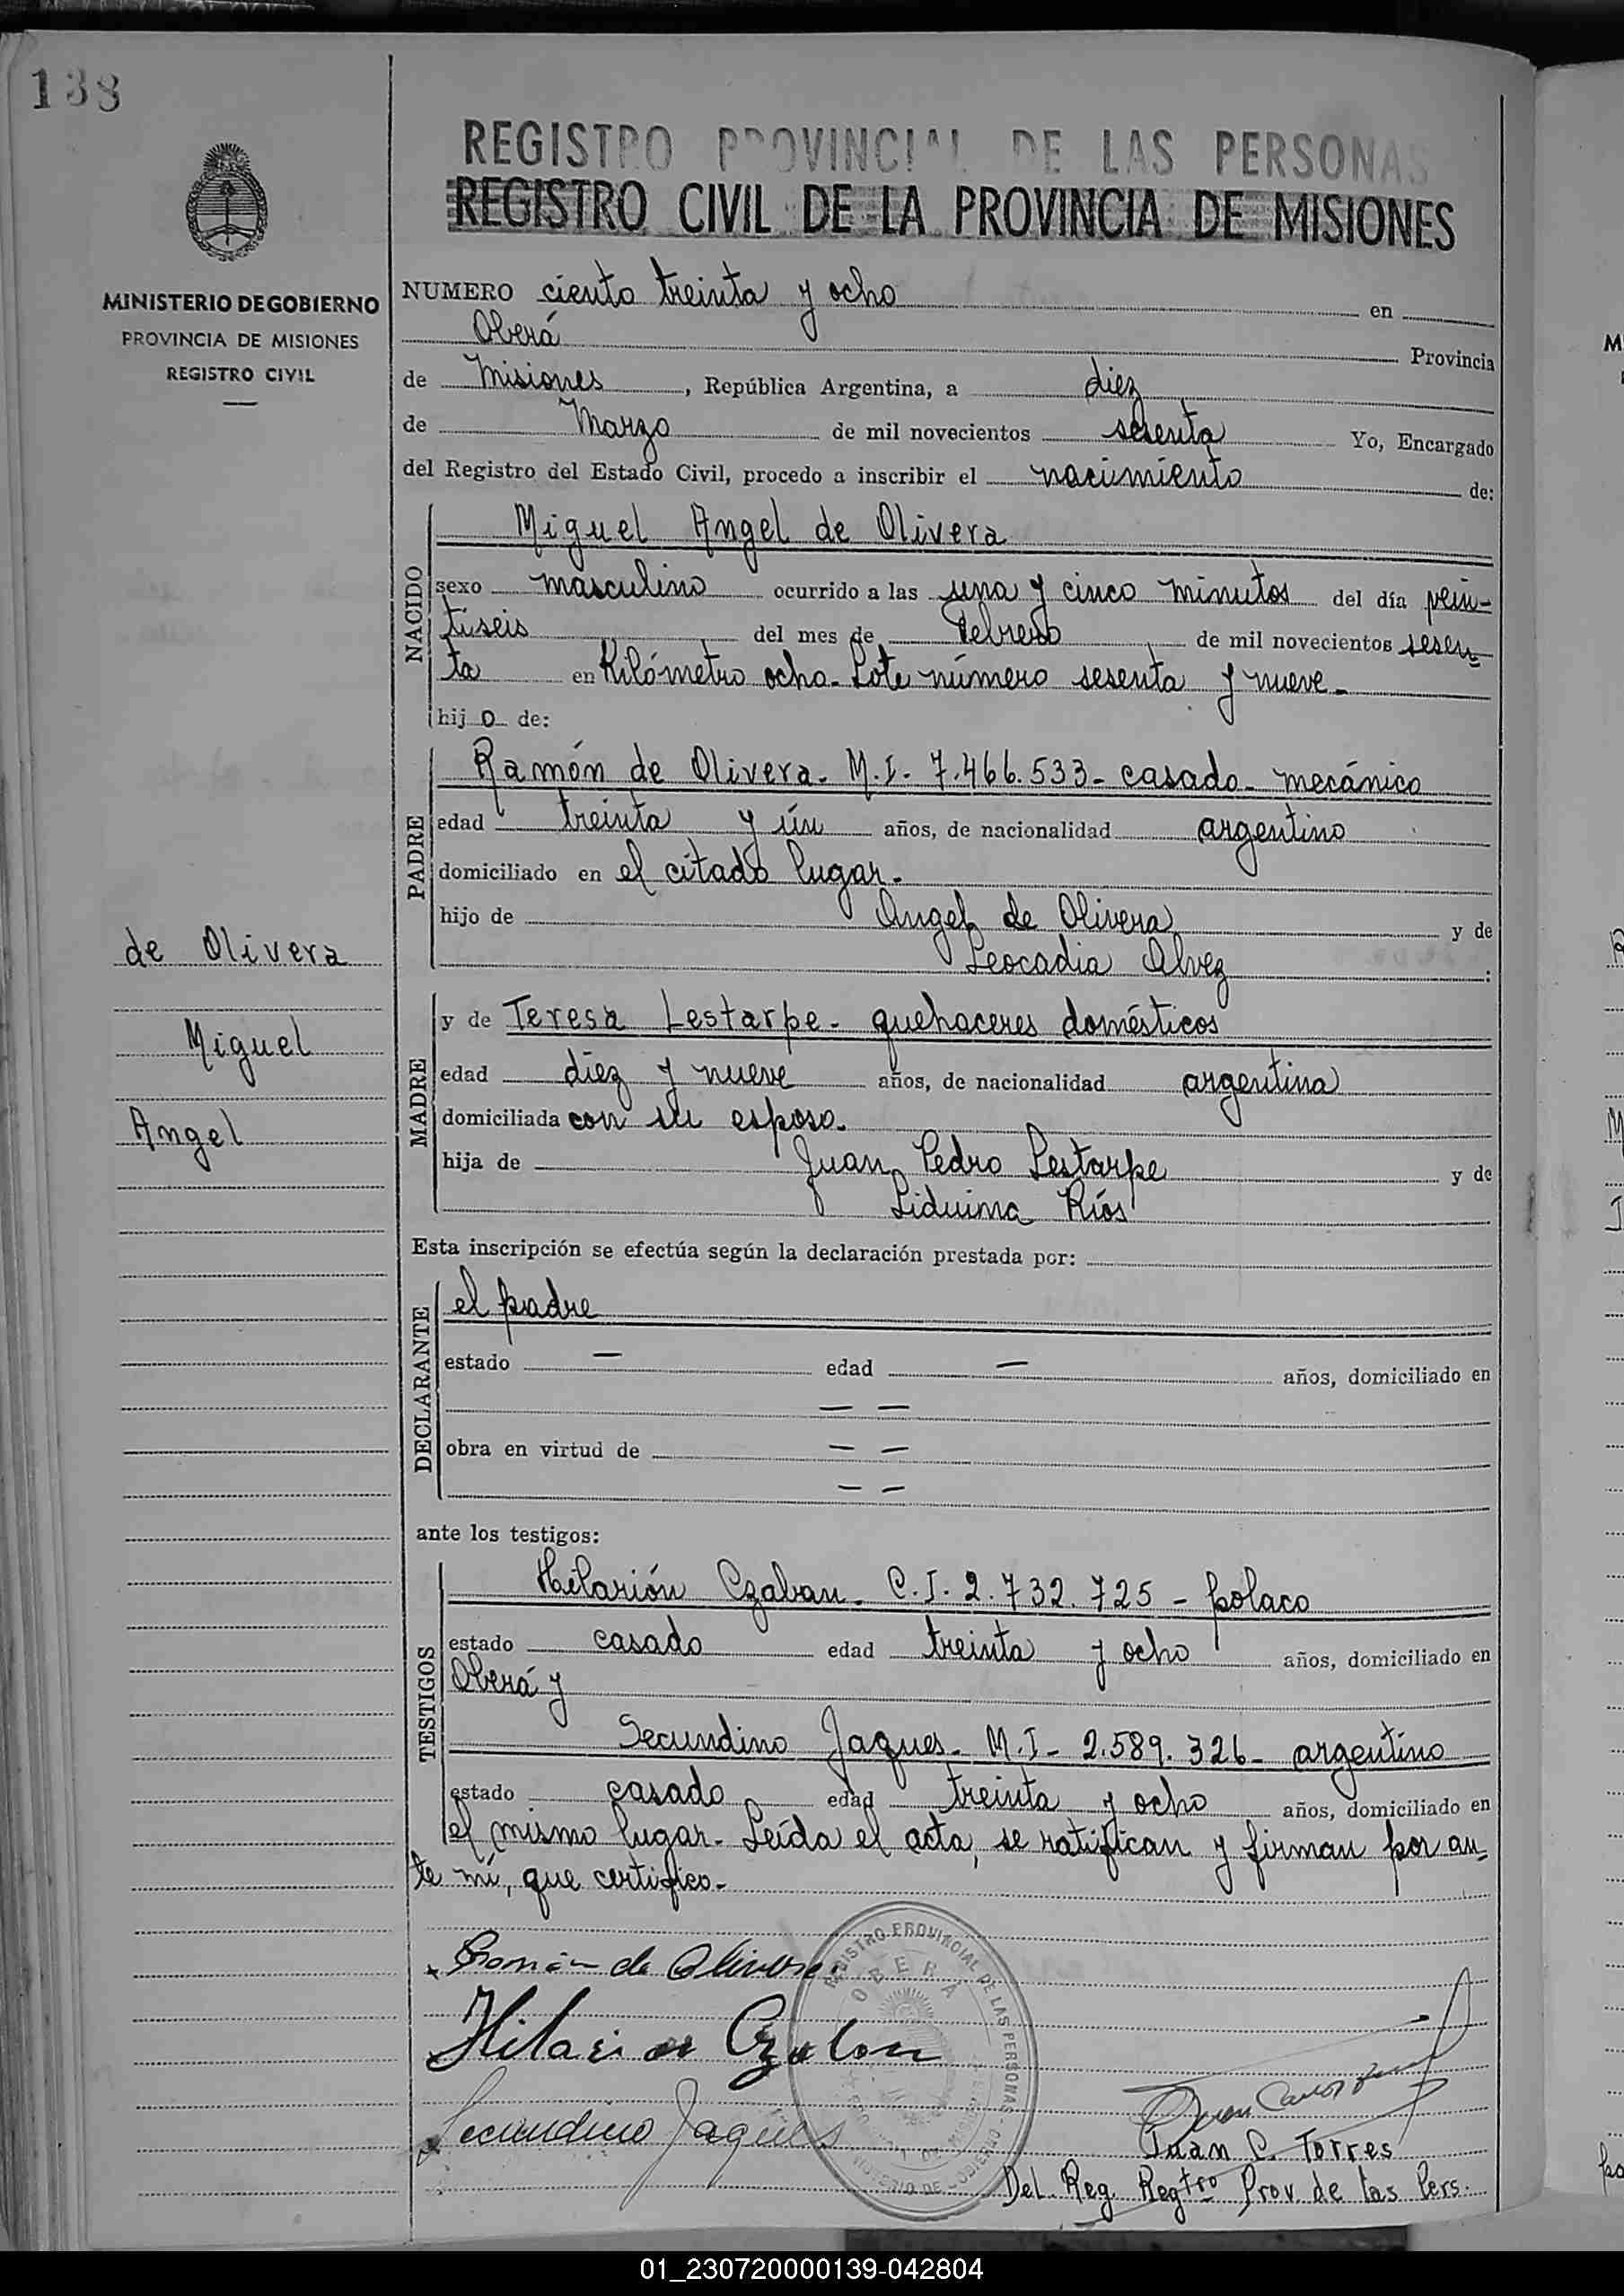 138
MINISTERIO DE GOBIERNO
PROVINCIA DE MISIONES
REGISTRO CIVIL
de Olivera
Miguel
Angel
REGISTRO PROVINCIAL DE LAS PERSONAS
REGISTRO CIVIL DE LA PROVINCIA DE MISIONES
NUMERO ciento treinta y ocho en
Oberá Provincia
de Misiones, República Argentina, a diez
de Marzo de mil novecientos sesenta Yo, Encargado
del Registro del Estado Civil, procedo a inscribir el nacimiento de:
NACIDO
Miguel Angel de Olivera
sexo masculino ocurrido a las una y cinco minutos del día vein-
tiseis del mes de Febrero de mil novecientos sesen-
ta en Kilómetro ocho. Lote número sesenta y nueve.
hijo de:
PADRE
Ramón de Olivera. M.I. 7.466.533 - casado. mecánico
edad treinta y ún años, de nacionalidad argentino
domiciliado en el citado lugar.
hijo de Angel de Olivera y de
Leocadia Alvez :
MADRE
y de Teresa Lestarpe. quehaceres domésticos
edad diez y nueve años, de nacionalidad argentina
domiciliada con su esposo.
hija de Juan Pedro Lestarpe y de
Liduina Ríos
Esta inscripción se efectúa según la declaración prestada por:
DECLARANTE
el padre
estado — edad — años, domiciliado en
— —
obra en virtud de — —
— —
ante los testigos:
TESTIGOS
Hilarión Czaban. C.I. 2.732.725 - polaco
estado casado edad treinta y ocho años, domiciliado en
Oberá y
Secundino Jaques. M.I. 2.589.326 - argentino
estado casado edad treinta y ocho años, domiciliado en
el mismo lugar. Leída el acta, se ratifican y firman por an-
te mí, que certifico.
Ramón de Olivera
Hilarion Czaban
Secundino Jaques
REGISTRO PROVINCIAL DE LAS PERSONAS
OBERA
Juan C. Torres
Del. Reg. Regtro Prov. de las Pers.
01_230720000139-042804